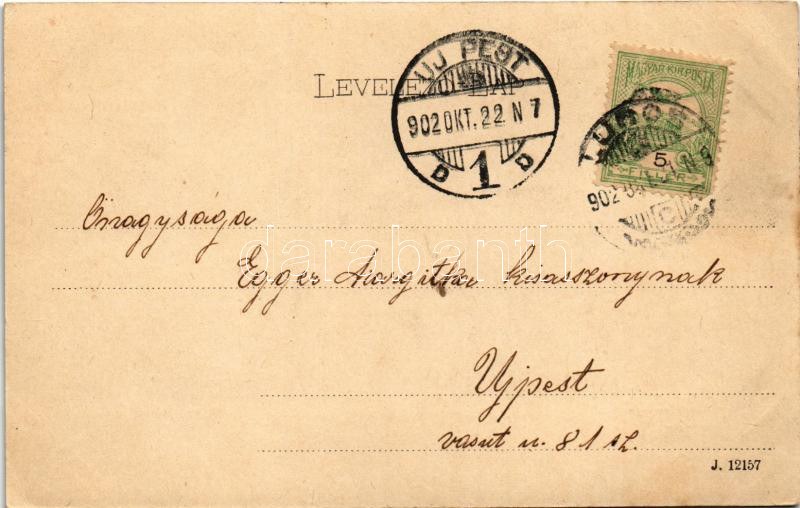 LEVELEZŐ-LAP
UJ PEST
902 OKT. 22 N 7
D 1 D
MAGYAR KIR. POSTA
5
FILLÉR
LUGOS
902 N 8
C
Őnagysága
Egger Margitka kisasszonynak
Ujpest
vasut u. 81 sz.
J. 12157
darabanth